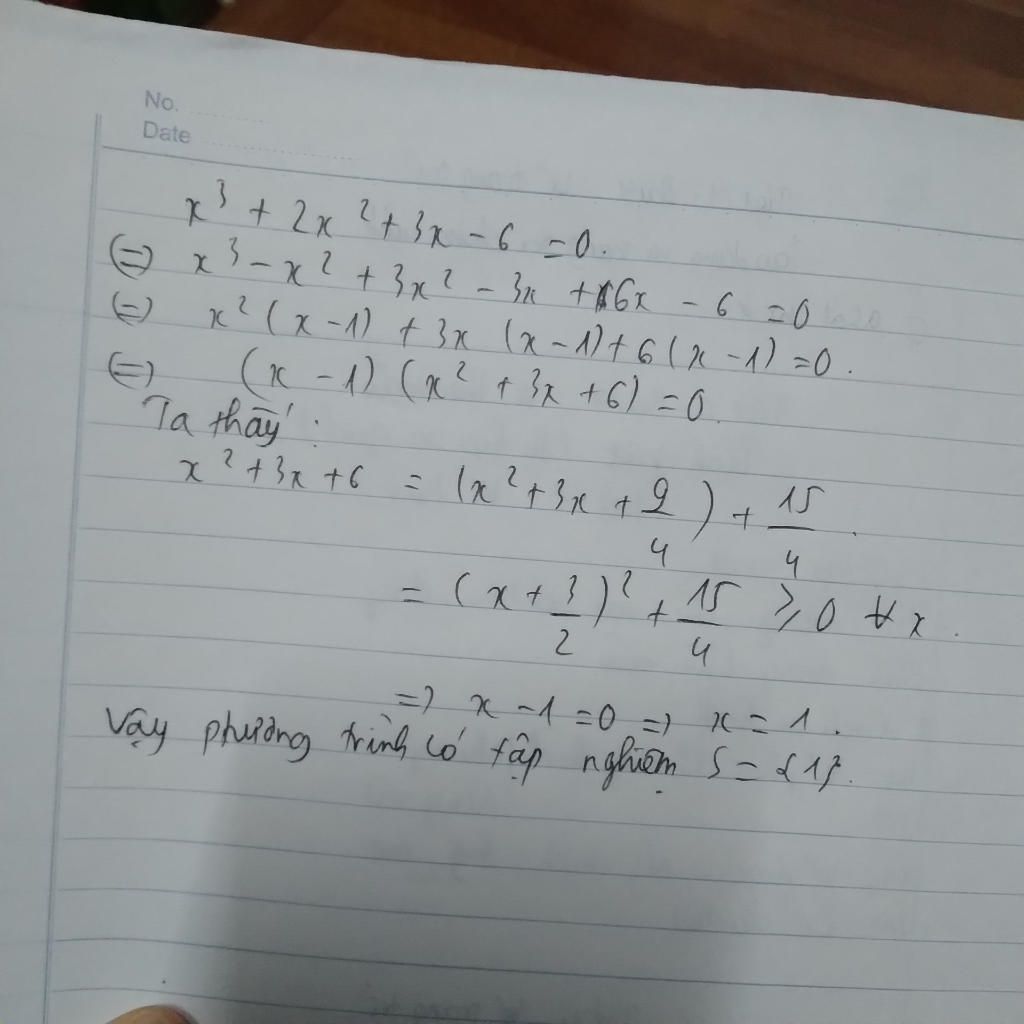 No.
Date
x³ + 2x² + 3x - 6 = 0.
(=) x³ - x² + 3x² - 3x + 6x - 6 = 0
(=) x² (x - 1) + 3x (x - 1) + 6 (x - 1) = 0.
(=) (x - 1) (x² + 3x + 6) = 0.
Ta thấy :
x² + 3x + 6 = (x² + 3x + 9/4) + 15/4.
= (x + 3/2)² + 15/4 ⩾ 0 ∀ x.
=> x - 1 = 0 => x = 1.
Vậy phương trình có tập nghiệm S = {1}.